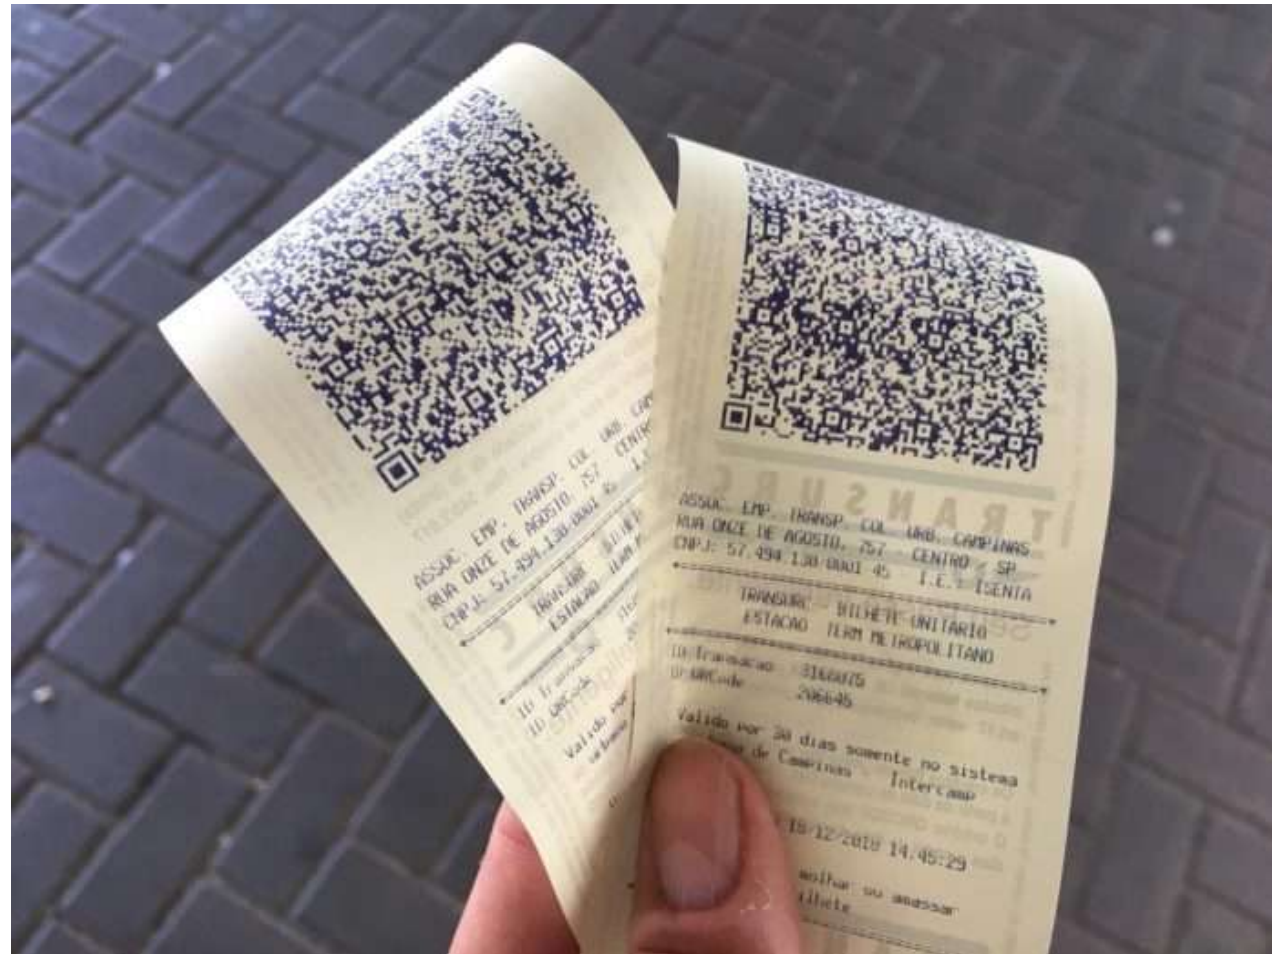 ASSOC. EMP. TRANSP. COL. URB.
RUA ONZE DE AGOSTO, 757 CENTRO
CNPJ: 57.494.130.0001 45
TRANSURC BILHETE
ESTACAO TERM
ID Transacao
ID QRCode
Valido por
urbano
ASSOC. EMP. TRANSP. COL. URB. CAMPINAS
RUA ONZE DE AGOSTO, 757 - CENTRO SP
CNPJ: 57.494.130/0001 45 I.E.: ISENTA
TRANSURC - BILHETE UNITARIO
ESTACAO TERM METROPOLITANO
ID Transacao 3160075
ID QRCode 206645
Valido por 30 dias somente no sistema
de Campinas Intercamp
18/12/2018 14.45:29
molhar ou amassar
bilhete
TRANSURC